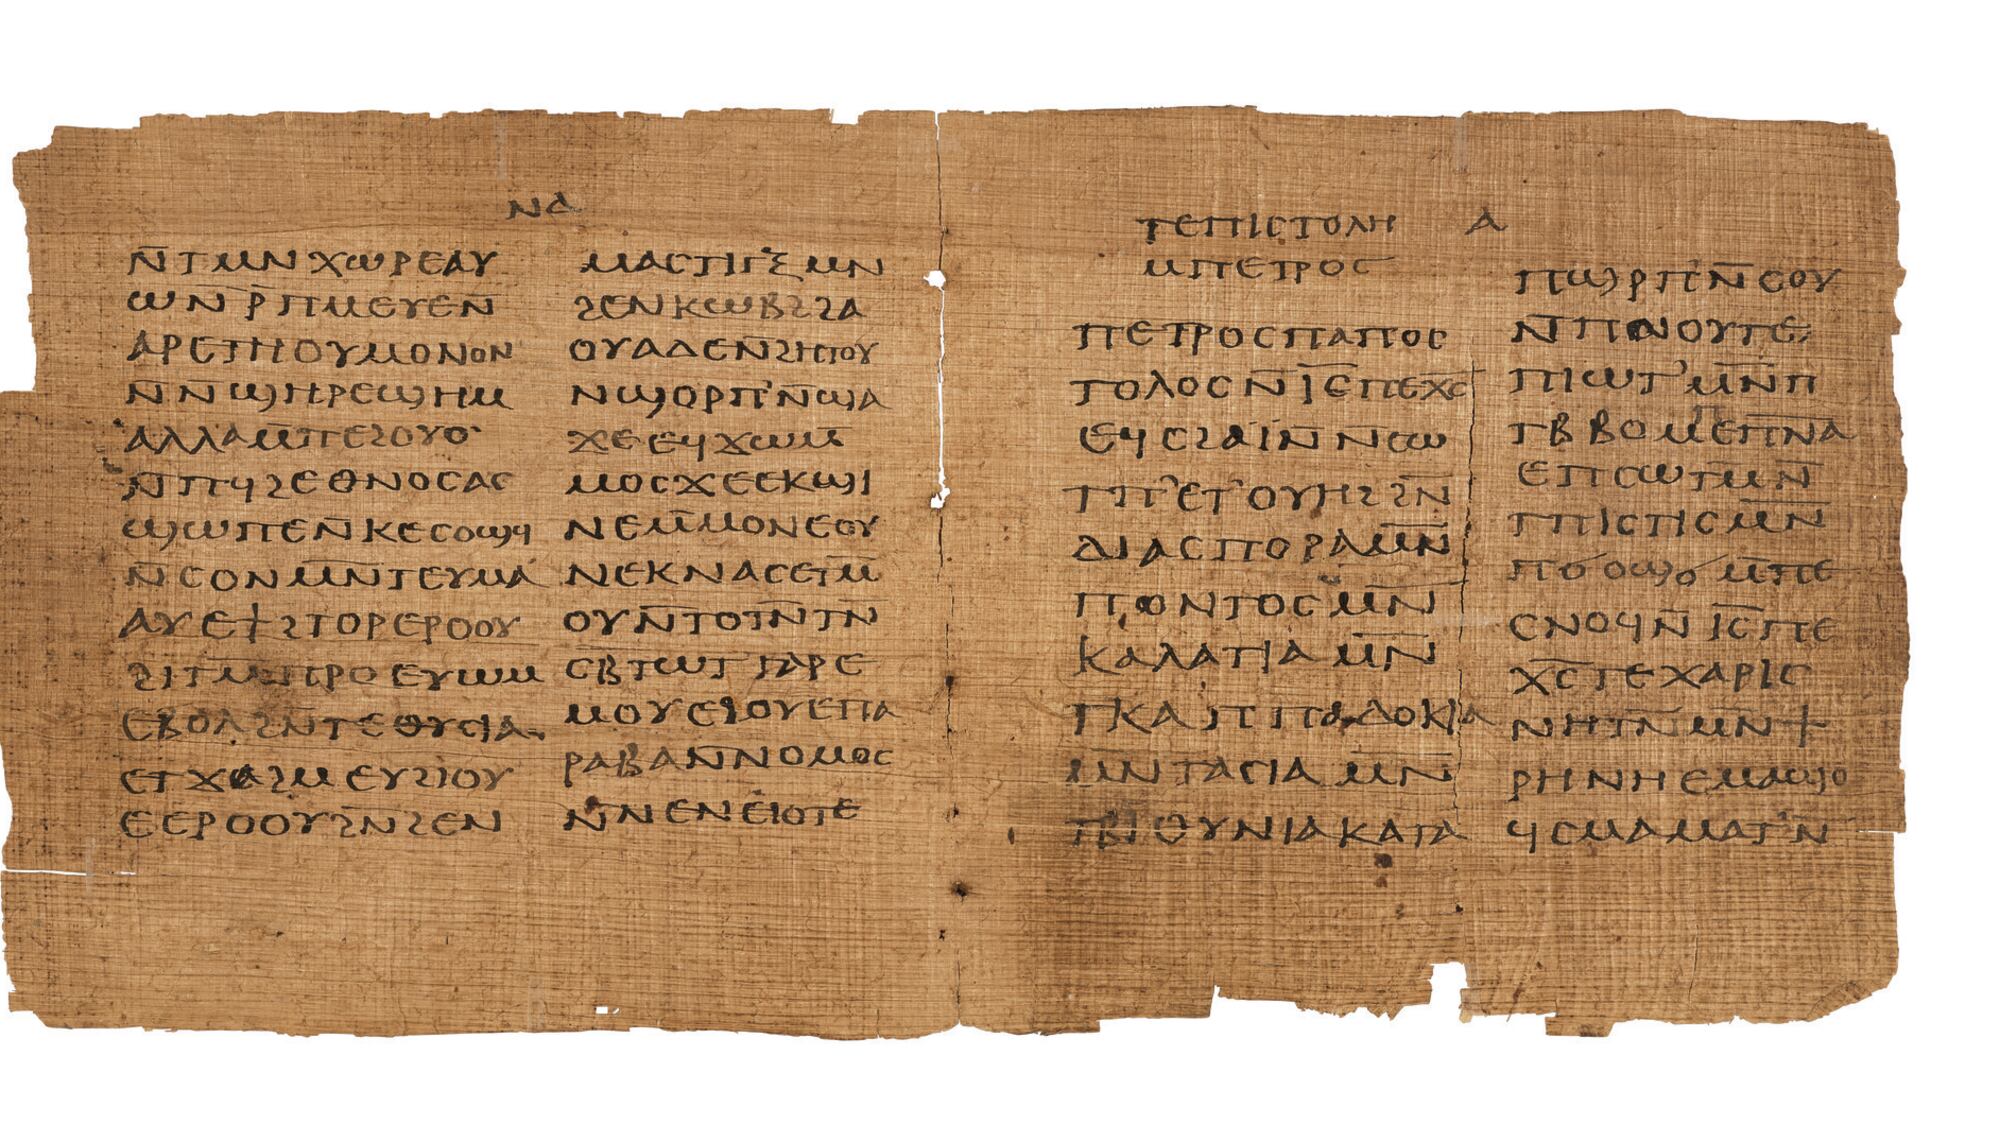 ⲛⲇ
ⲛ̄ⲧⲙⲛⲭⲱⲣⲉⲁⲩ
ⲱⲛ̄ⲣ̄ⲡⲙⲉⲩⲉⲛ̄
ⲁⲣⲉⲧⲏⲟⲩⲙⲟⲛⲟⲛ
ⲛ̄ⲛϣⲏⲣⲉϣⲏⲙ
ⲁⲗⲗⲁⲙ̄ⲡⲉϩⲟⲩⲟ
ⲛ̄ⲡϥϩⲉⲑⲛⲟⲥⲁⲥ
ϣⲱⲡⲉⲛ̄ⲕⲉⲥⲟϣϥ
ⲛ̄ⲥⲟⲛⲙⲛ̄ⲧⲉⲩⲙⲁ
ⲁⲩⲉϯϩⲧⲟⲣⲉⲣⲟⲟⲩ
ϩⲓⲧⲙ̄ⲡⲣⲟⲉⲩⲱⲙ
ⲉⲃⲟⲗϩⲛ̄ⲧⲉⲑⲩⲥⲓⲁ
ⲉⲧϫⲁϩⲙⲉⲩϩⲓⲟⲩ
ⲉⲉⲣⲟⲟⲩϩⲛ̄ϩⲉⲛ
ⲙⲁⲥⲧⲓⲅⲝⲙⲛ
ϩⲉⲛⲕⲱⲃϩϩⲁ
ⲟⲩⲁⲇⲉⲛ̄ϩⲏⲧⲟⲩ
ⲛϣⲟⲣⲡ'ⲛ̄ϣⲁ
ϫⲉⲉϥϫⲱⲙ̄
ⲙⲟⲥϫⲉⲉⲕϣⲓ
ⲛⲉⲙ̄ⲙⲟⲛⲉⲟⲩ
ⲛⲉⲕⲛⲁⲥⲉⲧⲙ̄
ⲟⲩⲛ̄ⲧⲟⲧⲛ̄ⲧⲛ̄
ⲥⲃ̄ⲧⲱⲧⲅⲁⲣⲉ
ⲙⲟⲩⲉϩⲟⲩⲉⲡⲁ
ⲣⲁⲃⲁⲛ̄ⲛⲟⲙⲟⲥ
ⲛ̄ⲛⲉⲛⲉⲓⲟⲧⲉ
ⲧⲉⲡⲓⲥⲧⲟⲗⲏ ⲁ
ⲙⲡⲉⲧⲣⲟⲥ
ⲡⲉⲧⲣⲟⲥⲡⲁⲡⲟⲥ
ⲧⲟⲗⲟⲥⲛ̄ⲓ̅ⲥ̅ⲡⲉⲭ̅ⲥ̅
ⲉϥⲥϩⲁⲓ̈ⲛ̄ⲛⲥⲱ
ⲧⲡ'ⲉⲧ'ⲟⲩⲏϩϩⲛ̄
ⲇⲓⲁⲥⲡⲟⲣⲁⲙ̄ⲛ̄
ⲡⲟⲛⲧⲟⲥⲙ̄ⲛ̄
ⲕⲁⲗⲁⲧⲓⲁⲙ̄ⲛ̄
ⲧⲕⲁⲡⲡⲁⲇⲟⲕⲓⲁ
ⲙ̄ⲛ̄ⲧⲁⲥⲓⲁⲙ̄ⲛ̄
ⲧⲃⲓⲑⲩⲛⲓⲁⲕⲁⲧⲁ
ⲡϣⲣⲡ'ⲛ̄ⲥⲟⲩ
ⲛ̄ⲡⲛⲟⲩⲧⲉ
ⲡⲓⲱⲧ'ⲙ̄ⲛ̄ⲡ
ⲧⲃⲃⲟⲙ̄ⲉⲡ̅ⲛ̅ⲁ̅
ⲉⲡⲥⲱⲧⲙ̄ⲛ̄
ⲧⲡⲓⲥⲧⲓⲥⲙ̄ⲛ̄
ⲡϭⲟϣϭⲙ̄ⲡⲉ
ⲥⲛⲟϥⲛ̄ⲓ̅ⲥ̅ⲡⲉ
ⲭ̅ⲥ̅ⲧⲉⲭⲁⲣⲓⲥ
ⲛⲏⲧⲛ̄ⲙⲛ̄ϯ
ⲣⲏⲛⲏⲉⲙⲁϣⲟ
ϥⲥⲙⲁⲙⲁⲧ'ⲛ̄